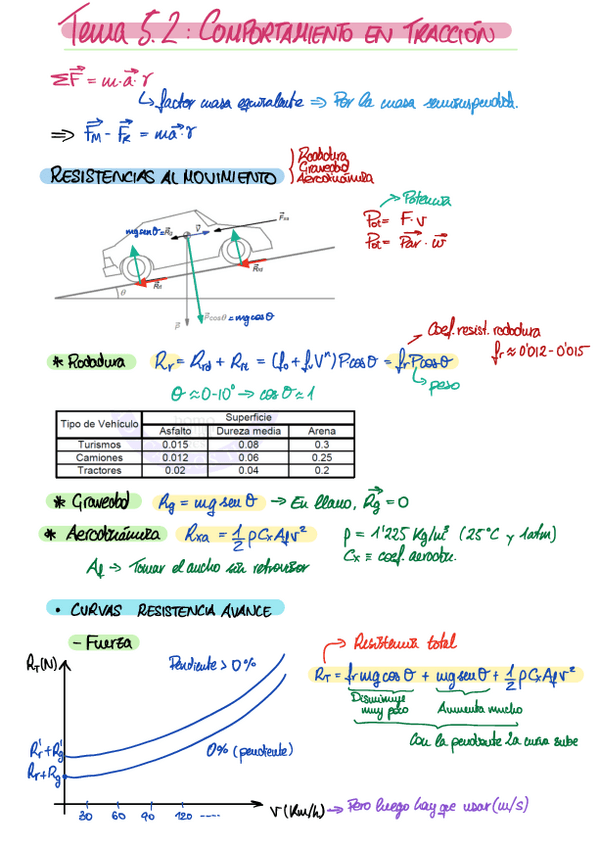 Tema 5.2: COMPORTAMIENTO EN TRACCIÓN
ΣF⃗ = m·a⃗·γ
↳ factor masa equivalente ⇒ Por la masa semisuspendida.
⇒ F⃗M - F⃗R = ma⃗·γ
RESISTENCIAS AL MOVIMIENTO
Rodadura
Gravedad
Aerodinámica
→ Potencia
Pot = F·v
Pot = Par·ω
mg senθ = Rg
V
Fxa
Rrt
Rrd
θ
P
Pcosθ = mg cosθ
Coef. resist. rodadura
fr ≈ 0'012 - 0'015
* Rodadura Rr = Rrd + Rrt = (fo + fv Vⁿ) P cosθ = fr P cosθ
↳ peso
θ ≈ 0-10° → cosθ ≈ 1
Tipo de Vehículo Superficie
Asfalto Dureza media Arena
Turismos 0.015 0.08 0.3
Camiones 0.012 0.06 0.25
Tractores 0.02 0.04 0.2
* Gravedad Rg = mg senθ → En llano, R⃗g = 0
* Aerodinámica Rxa = 1/2 ρ Cx Af v² ρ = 1'225 Kg/m³ (25°C y 1atm)
Cx ≡ coef. aerodin.
Af → Tomar el ancho sin retrovisor
• CURVAS RESISTENCIA AVANCE
- Fuerza
→ Resistencia total
RT(N)
Pendiente > 0%
RT = fr mg cosθ + mg senθ + 1/2 ρ Cx Af v²
Disminuye muy poco
Aumenta mucho
Con la pendiente la curva sube
R'r + R'g
0% (pendiente)
Rr + Rg
30 60 90 120 .....
V (Km/h) → Pero luego hay que usar (m/s)